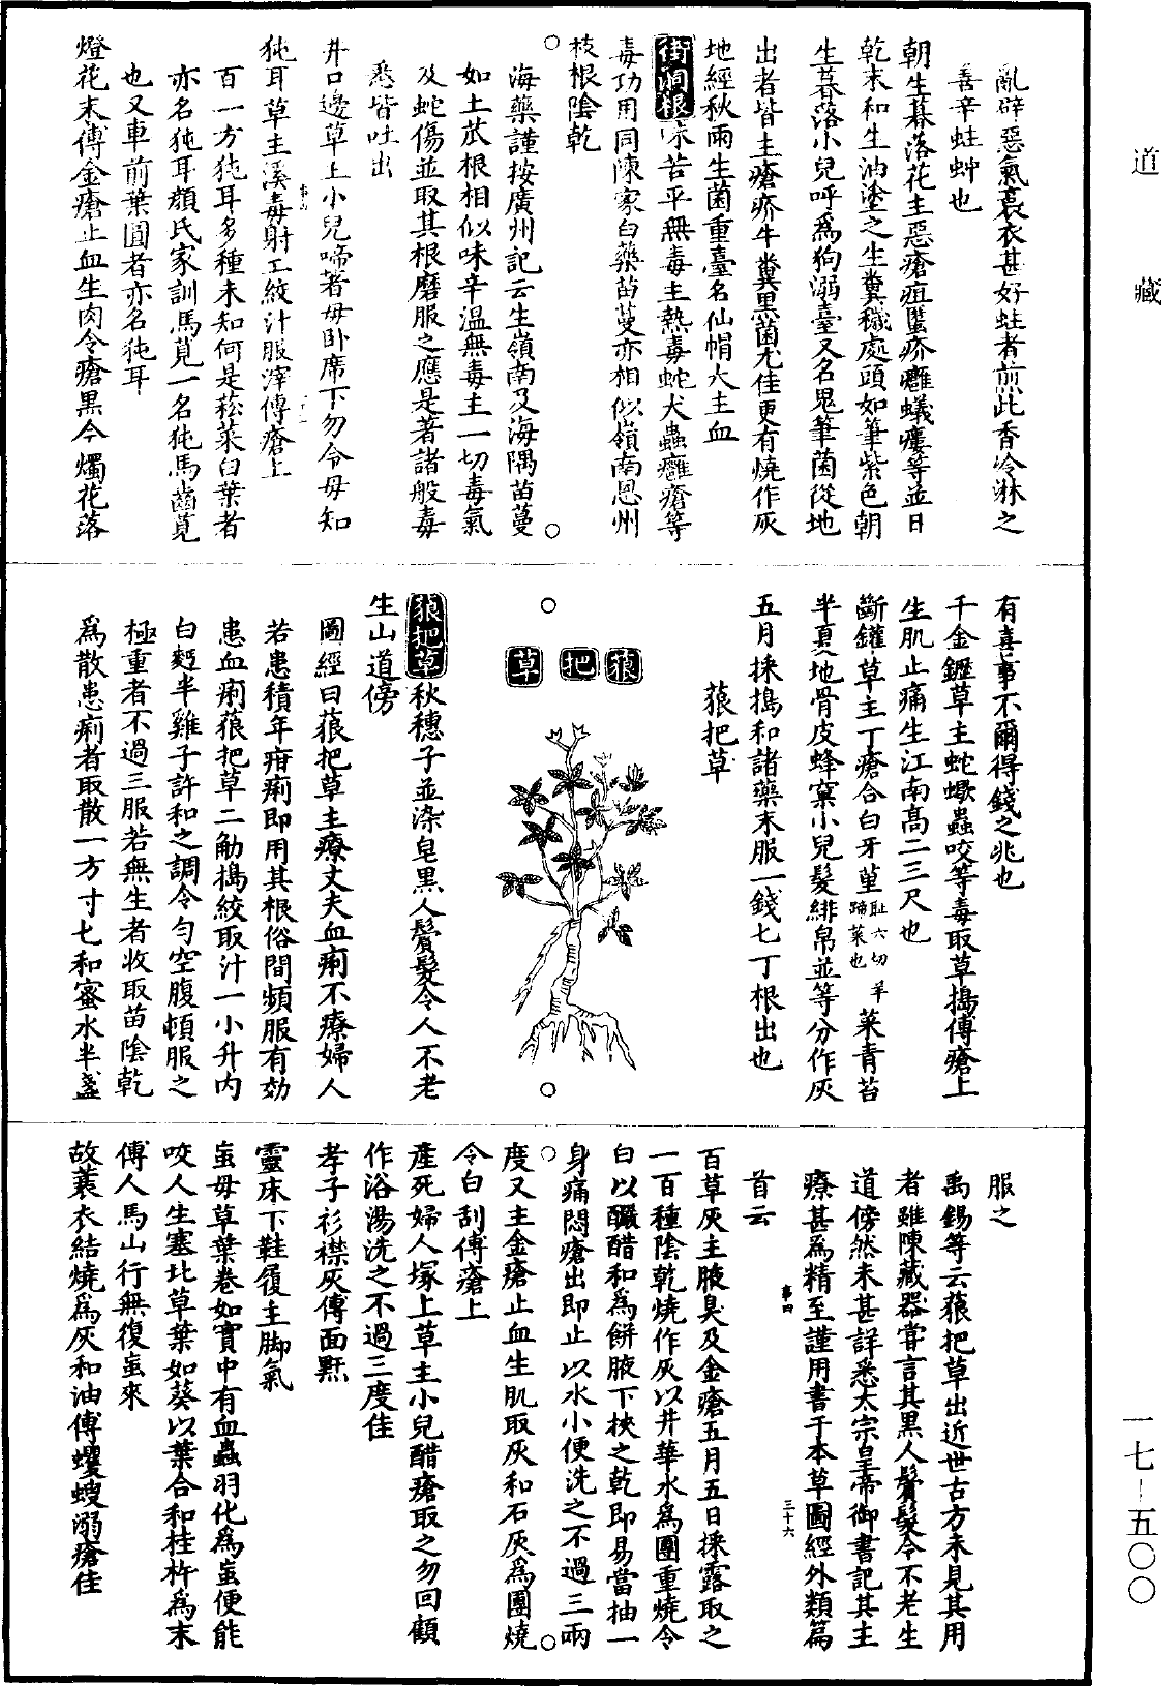 亂辟惡氣裛衣甚好蛀者煎此香冷淋之
善辛蛀蚛也
朝生暮落花主惡瘡疽䘌疥癰蟻瘻等並日
乾末和生油塗之生糞穢處頭如筆紫色朝
生暮落小兒呼為狗溺臺又名鬼筆菌從地
出者皆主瘡疥牛糞黑菌尤佳更有燒作灰
地經秋雨生菌重臺名仙帽大主血
衝洞根味苦平無毒主熱毒蛇犬蟲癰瘡等
毒功用同陳家白藥苗蔓亦相似嶺南恩州
枝根陰乾
海藥謹按廣州記云生嶺南及海隅苗蔓
如土苽根相似味辛温無毒主一切毒氣
及蛇傷並取其根磨服之應是著諸般毒
悉皆吐出
井口邊草主小兒啼著母卧席下勿令母知
㹠耳草主溪毒射工絞汁服滓傅瘡上
百一方㹠耳多種未知何是菘菜白葉者
亦名㹠耳顏氏家訓馬莧一名㹠馬齒莧
也又車前葉圓者亦名㹠耳
燈花末傅金瘡止血生肉令瘡黑今燭花落
有喜事不爾得錢之兆也
千金鑩草主蛇蠍蟲咬等毒取草擣傅瘡上
生肌止痛生江南高二三尺也
斷罐草主丁瘡合白牙堇恥六切羊蹄菜也菜青苔
半夏地骨皮蜂窠小兒髮緋帛並等分作灰
五月採擣和諸藥末服一錢匕丁根出也
蒗把草
蒗
把
草
蒗把草秋穗子並染皂黑人鬢髮令人不老
生山道傍
圖經曰蒗把草主療丈夫血痢不療婦人
若患積年疳痢即用其根俗間頻服有効
患血痢蒗把草二觔擣絞取汁一小升內
白麫半雞子許和之調令勻空腹頓服之
極重者不過三服若無生者收取苗陰乾
為散患痢者取散一方寸匕和蜜水半盞
服之
禹錫等云蒗把草出近世古方未見其用
者雖陳藏器嘗言其黑人鬢髮令不老生
道傍然未甚詳悉太宗皇帝御書記其主
療甚為精至謹用書于本草圖經外類篇
首云
百草灰主腋臭及金瘡五月五日採露取之
一百種陰乾燒作灰以井華水為團重燒令
白以釅醋和為餅腋下挾之乾即易當抽一
身痛悶瘡出即止以水小便洗之不過三兩
度又主金瘡止血生肌取灰和石灰為團燒
令白刮傅瘡上
產死婦人塚上草主小兒醋瘡取之勿回顧
作浴湯洗之不過三度佳
孝子衫襟灰傅面䵟
靈床下鞋履主脚氣
䖟母草葉卷如實中有血蟲羽化為䖟便能
咬人生塞北草葉如葵以葉合和桂杵為末
傅人馬山行無復䖟來
故蓑衣結燒為灰和油傅蠼螋溺瘡佳
事四
三十六
道藏
一七-五〇〇